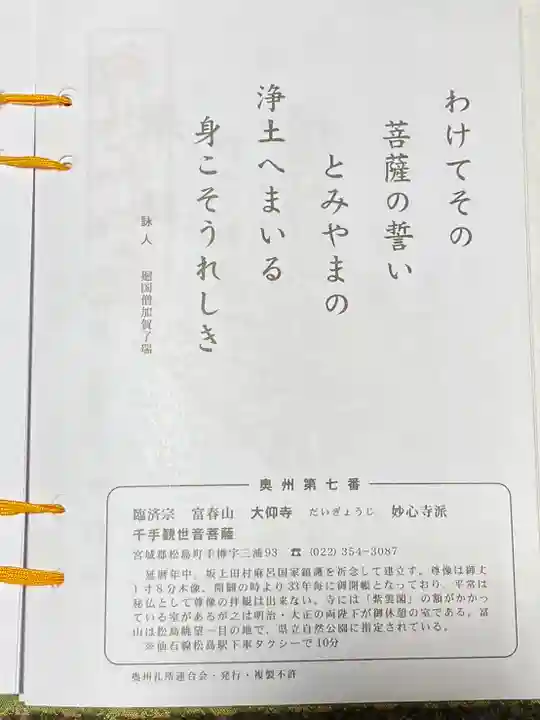 わけてその
菩薩の誓い
とみやまの
浄土へまいる
身こそうれしき
詠人 廻国僧加賀了瑞
奥州第七番
臨済宗 富春山 大仰寺 だいぎょうじ 妙心寺派
千手観世音菩薩
宮城郡松島町手樽字三浦93 ☎ (022) 354-3087
延暦年中、坂上田村麻呂国家鎮護を祈念して建立す。尊像は御丈
1寸8分木像。開闢の時より33年毎に御開帳となっており、平常は
秘仏として尊像の拝観は出来ない。寺には「紫雲閣」の額がかかっ
ている室があるが之は明治・大正の両陛下が御休憩の室である。富
山は松島眺望一目の地で、県立自然公園に指定されている。
※仙石線松島駅下車タクシーで10分
奥州札所連合会・発行・複製不許